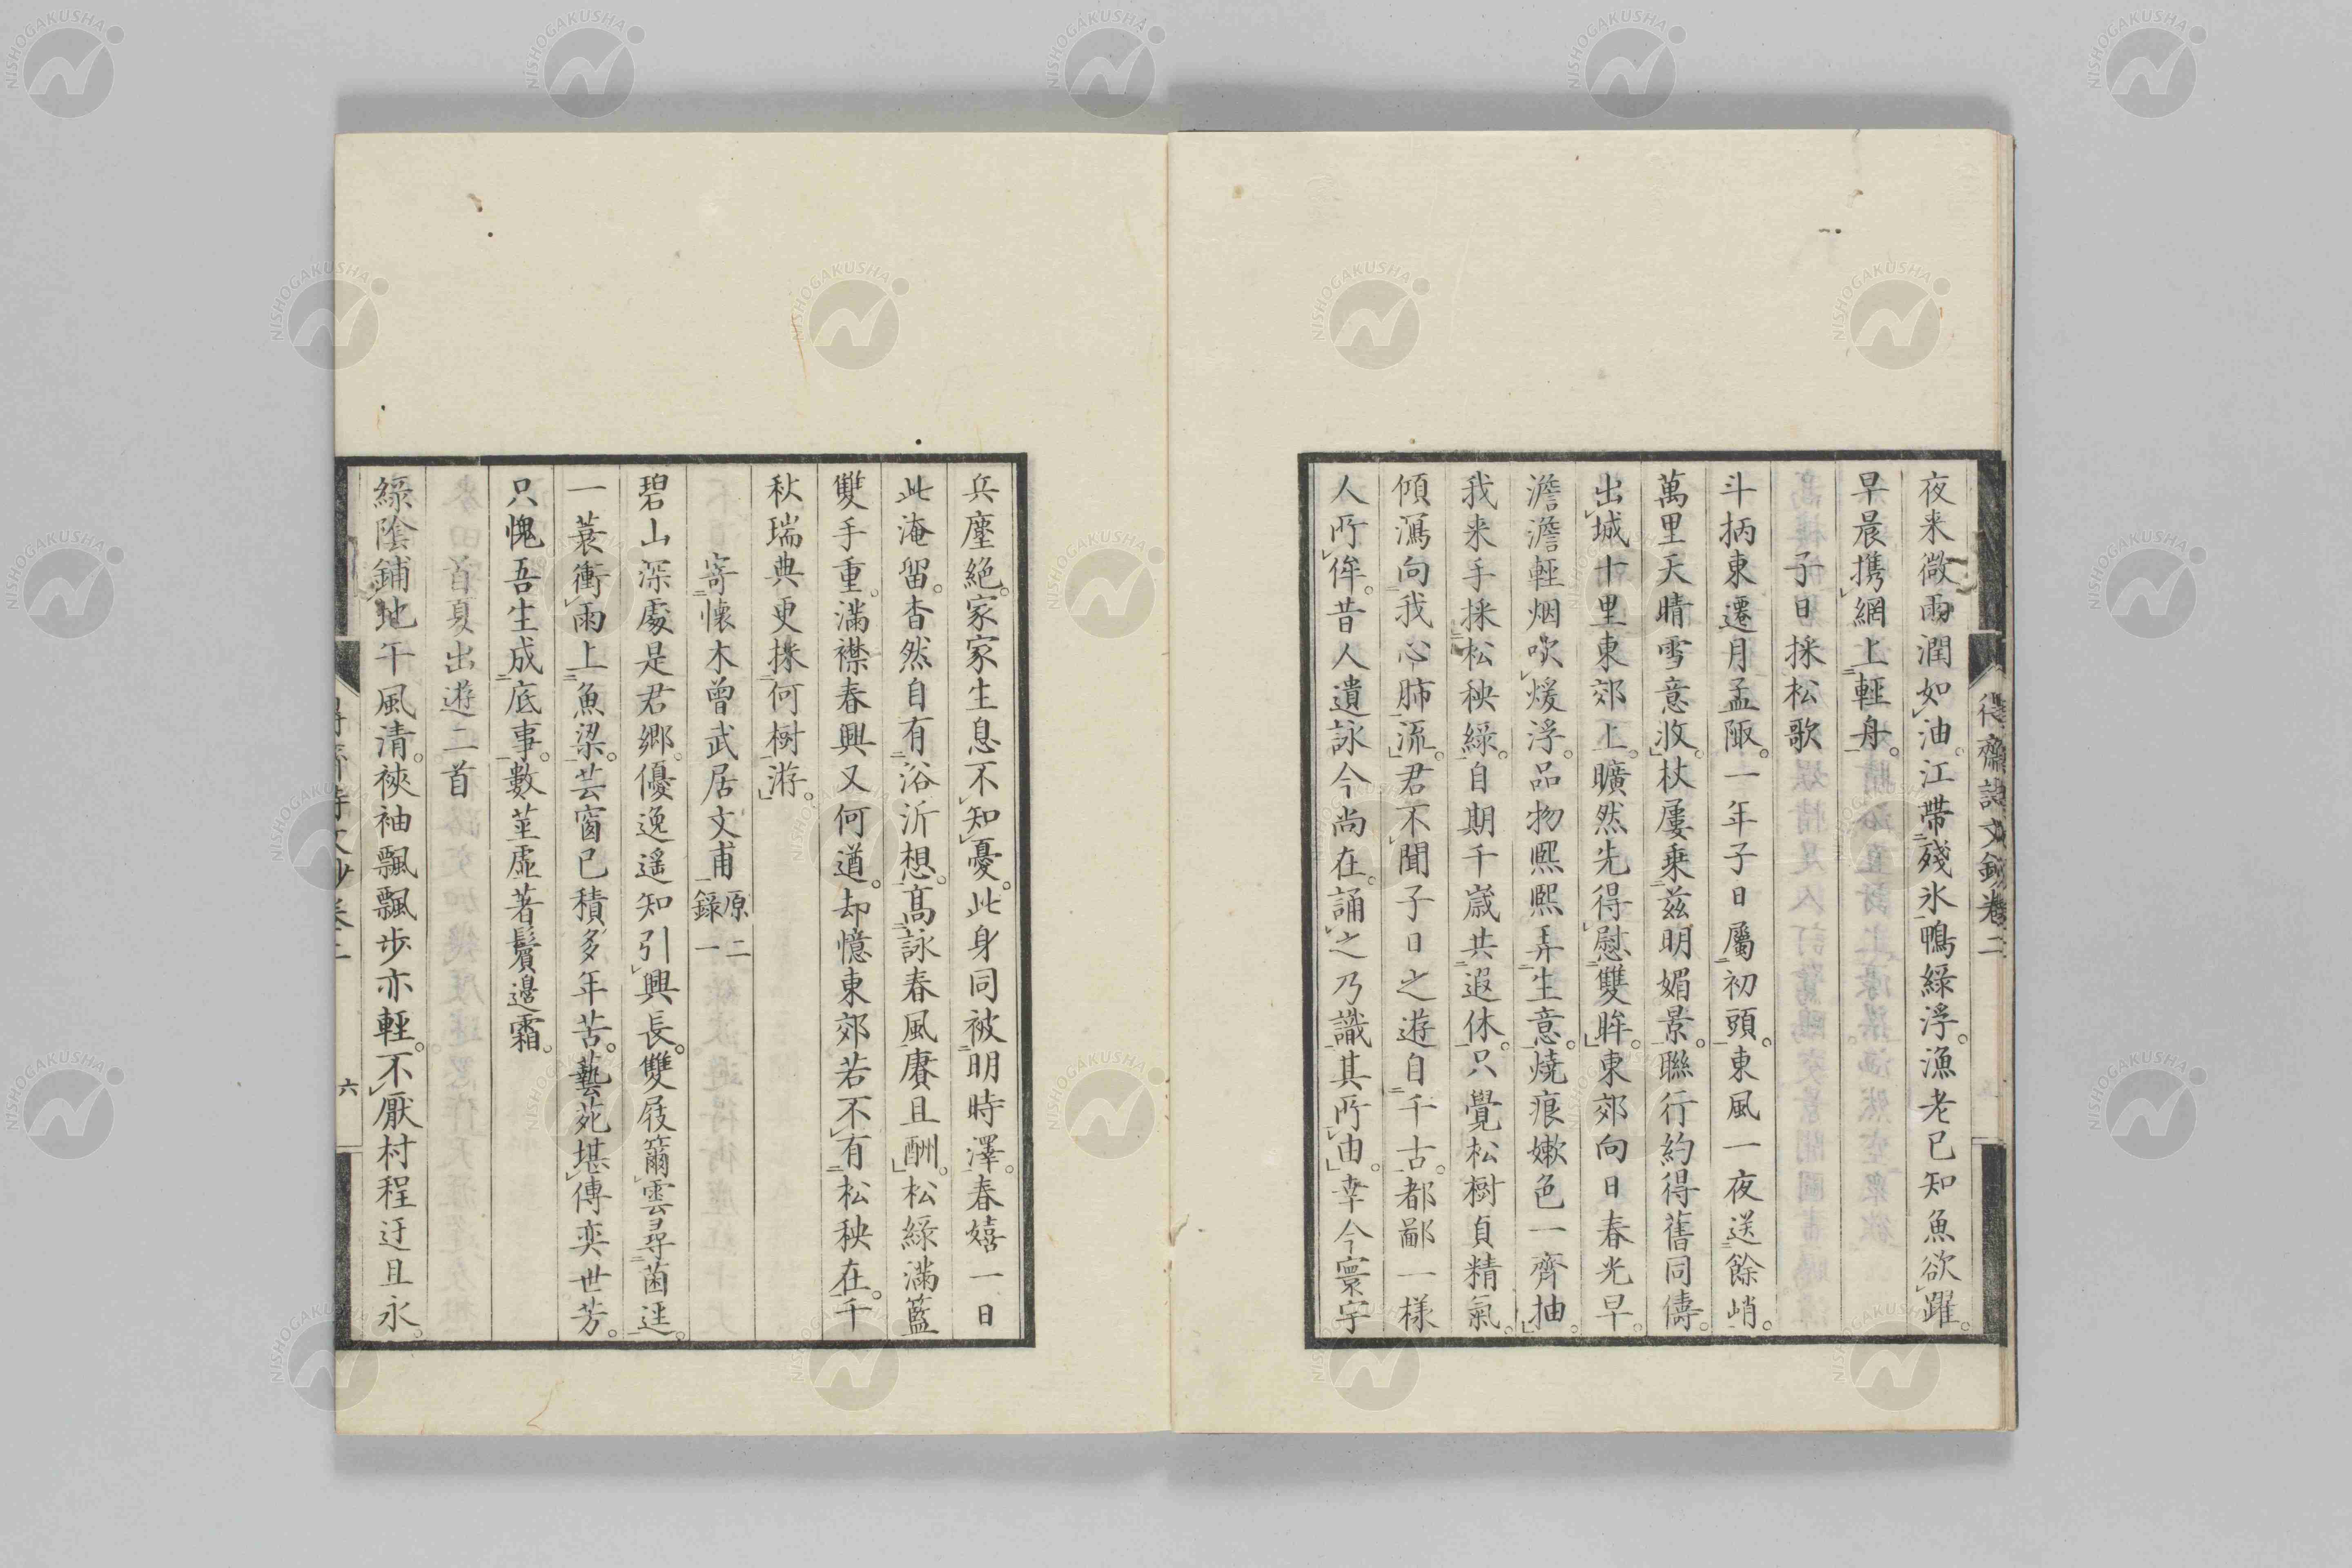 夜来微雨潤如油。江帶殘氷鴨綠浮。漁老已知魚欲躍。
早晨携網上輕舟。
子日採松歌
斗柄東遷月孟陬。一年子日屬初頭。東風一夜送餘峭。
萬里天晴雪意收。杖屢乘兹明媚景。聯行約得舊同儔。
出城十里東郊上。曠然先得慰雙眸。東郊向日春光早。
澹澹輕烟吹煖浮。品物熙熙弄生意。燒痕嫩色一齊抽。
我来手採松秧綠。自期千歳共遐休。只覺松樹貞精氣。
傾瀉向我心肺流。君不聞子日之遊自千古。都鄙一樣
人所侔。昔人遺詠今尚在。誦之乃識其所由。幸今寰宇
兵塵絶。家家生息不知憂。此身同被明時澤。春嬉一日
此淹留。杳然自有浴沂想。高詠春風賡且酬。松綠滿籃
雙手重。滿襟春興又何遒。却憶東郊若不有松秧在。千
秋瑞典更採何樹游。
寄懷木曾武居文甫 原二錄一
碧山深處是君鄉。優逸遥知引興長。雙屐籋雲尋菌逕。
一蓑衝雨上魚梁。芸窗已積多年苦。藝苑堪傳奕世芳。
只愧吾生成底事。數莖虛著鬢邊霜。
首夏出遊二首
綠陰鋪地午風清。裌袖飄飄步亦輕。不厭村程迂且永。
六